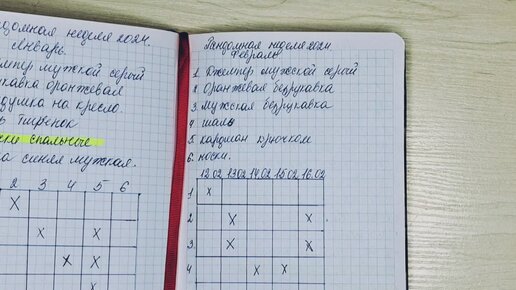 ндомная неделя 2024.
Январь.
мпер мужской серый
укавка оранжевая
душка на кресло.
ь
спальные
а синяя мужская.
2 3 4 5 6
X
X X
X X
X
Рандомная неделя 2024.
Февраль
1 Джемпер мужской серый
2 Оранжевая безрукавка
3 Мужская безрукавка
4 шаль
5 кардиган крючком
6. носки.
12.02 13.02 14.02 15.02 16.02
1 X
2 X X
3. X X
4 X X